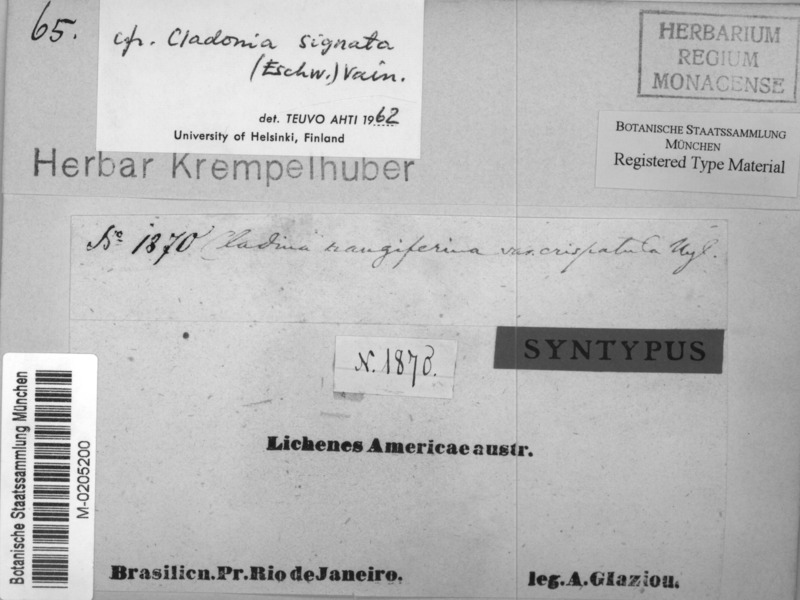 65.
cfr. Cladonia signata
(Eschw.) Vain.
det. TEUVO AHTI 1962
University of Helsinki, Finland
HERBARIUM
REGIUM
MONACENSE
BOTANISCHE STAATSSAMMLUNG
MÜNCHEN
Registered Type Material
Herbar Krempelhuber
No 1870 Cladina rangiferina var. crispatula Nyl.
SYNTYPUS
N. 1870.
Lichenes Americae austr.
Brasilien. Pr. Rio de Janeiro.
leg. A. Glaziou.
Botanische Staatssammlung München
M-0205200